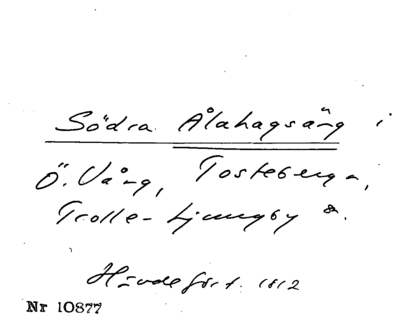 Södra Ålahagsäng i
Ö. Vång, Tosteberga,
Trolle-Ljungby s.
Hävdefört. 1812
Nr 10877